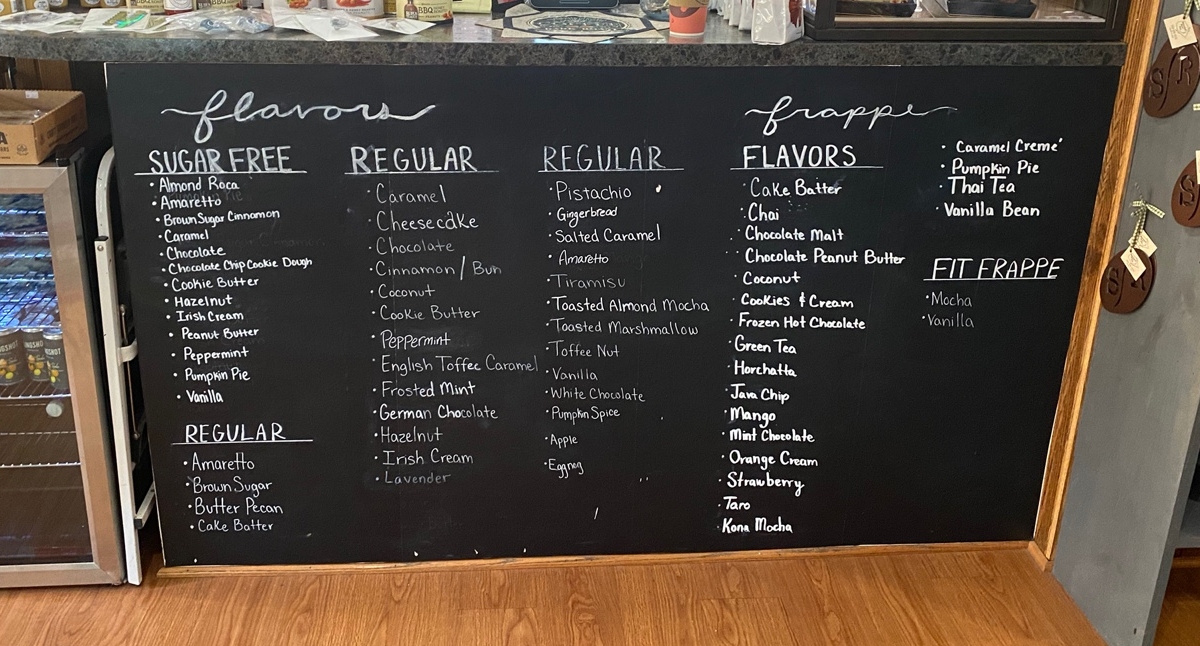 flavors
SUGAR FREE
• Almond Roca
• Amaretto
• Brown Sugar Cinnamon
• Caramel
• Chocolate
• Chocolate Chip Cookie Dough
• Cookie Butter
• Hazelnut
• Irish Cream
• Peanut Butter
• Peppermint
• Pumpkin Pie
• Vanilla
REGULAR
• Amaretto
• Brown Sugar
• Butter Pecan
• Cake Batter
REGULAR
• Caramel
• Cheesecake
• Chocolate
• Cinnamon / Bun
• Coconut
• Cookie Butter
• Peppermint
• English Toffee Caramel
• Frosted Mint
• German Chocolate
• Hazelnut
• Irish Cream
• Lavender
REGULAR
• Pistachio
• Gingerbread
• Salted Caramel
• Amaretto
• Tiramisu
• Toasted Almond Mocha
• Toasted Marshmallow
• Toffee Nut
• Vanilla
• White Chocolate
• Pumpkin Spice
• Apple
• Eggnog
frappe
FLAVORS
• Cake Batter
• Chai
• Chocolate Malt
• Chocolate Peanut Butter
• Coconut
• Cookies & Cream
• Frozen Hot Chocolate
• Green Tea
• Horchatta
• Java Chip
• Mango
• Mint Chocolate
• Orange Cream
• Strawberry
• Taro
• Kona Mocha
• Caramel Creme'
• Pumpkin Pie
• Thai Tea
• Vanilla Bean
FIT FRAPPE
• Mocha
• Vanilla
BBQ
S/R